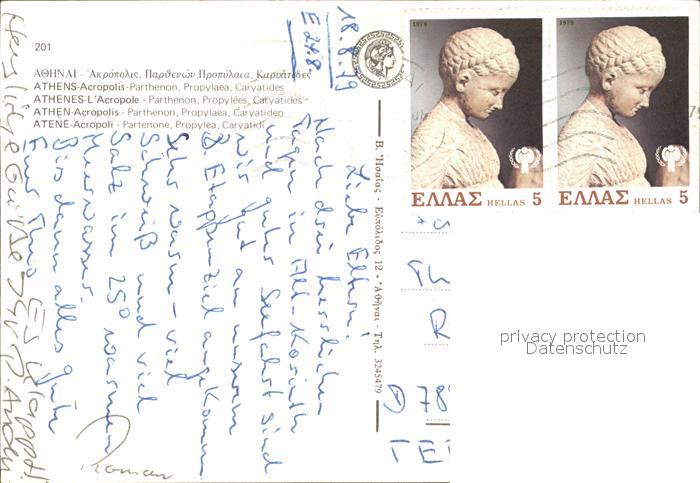 201
ΑΘΗΝΑΙ - Ἀκρόπολις. Παρθενών, Προπύλαια, Καρυάτιδες
ATHENS-Acropolis-Parthenon, Propylaea, Caryatides
ATHENES-L'Acropole - Parthenon, Propylées, Caryatides
ATHEN-Acropolis - Parthenon, Propylaea, Caryatiden
ATENE-Acropoli - Partenone, Propylea, Cariatidi
18.8.79
E 24.8.
Liebe Eltern!
Nach drei herrlichen
Tagen in Alt-Korinth
und guter Seefahrt sind
wir gut an unserem
3. Etappenziel angekommen.
Sehr warm - viel
Schweiß und viel
Salz im 25° warmen
Meerwasser.
Bis dann alles Gute
Eure
Roman
Herzliche Grüsse
Es klappt!
Β. Ἠσαΐας Εὐπόλιδος 12 - Ἀθῆναι - Τηλ. 3245479
1979
ΕΛΛΑΣ HELLAS 5
1979
ΕΛΛΑΣ HELLAS 5
R
D 78
privacy protection
Datenschutz